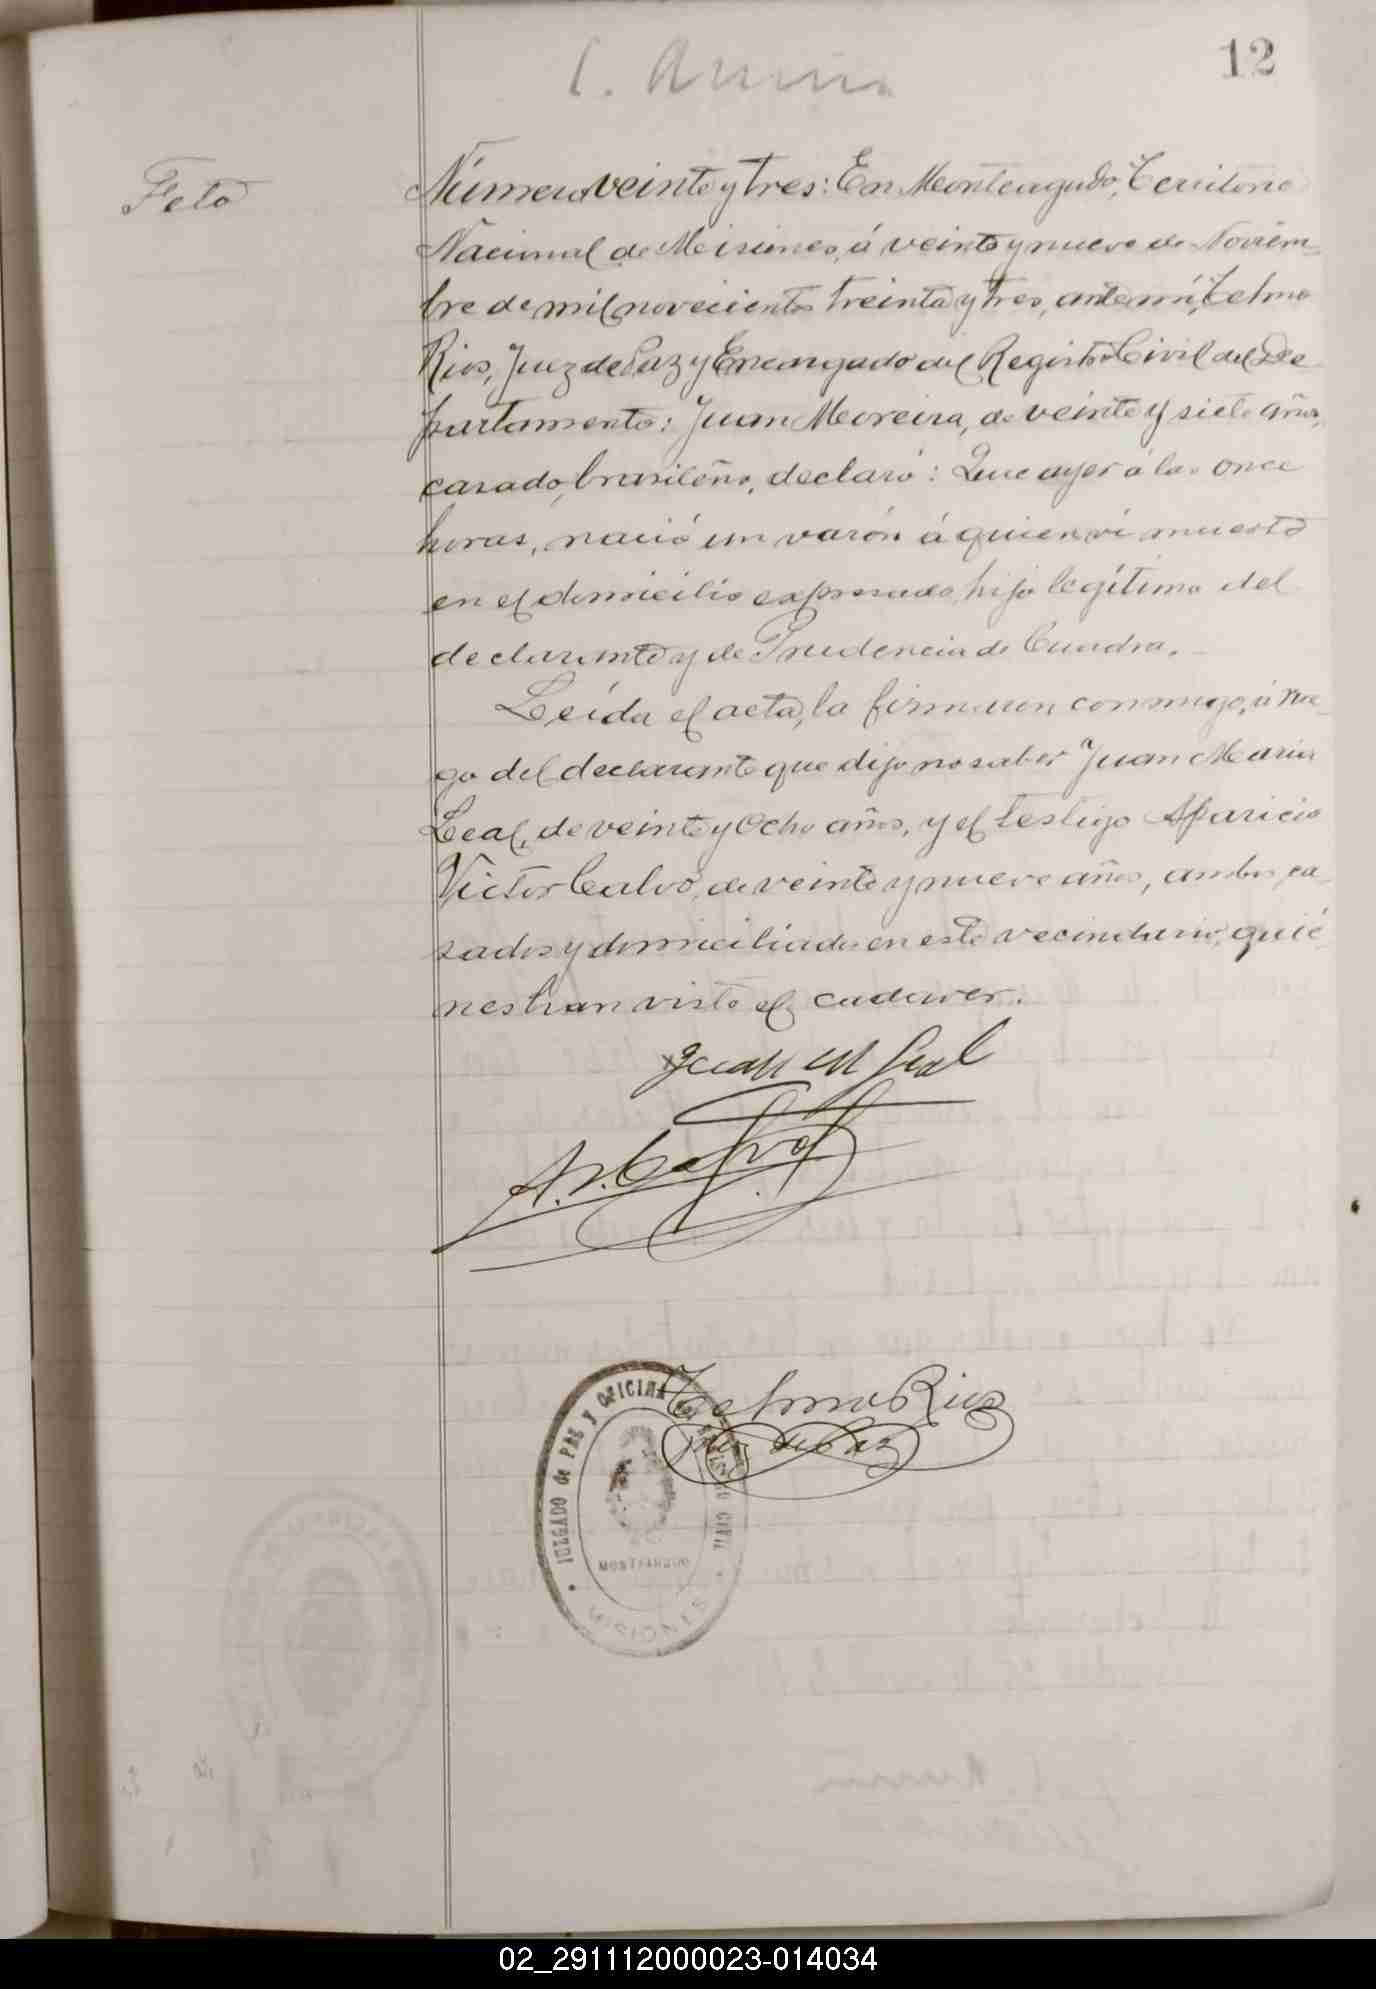 12
Feto
Número veinte y tres: En Monteagudo, Territorio
Nacional de Misiones, á veinte y nueve de Noviem-
bre de mil novecientos treinta y tres, ante mí, Telmo
Rios, Juez de Paz y Encargado del Registro Civil del De
partamento: Juan Moreira, de veinte y siete años,
casado, brasileño, declaró: Que ayer á las once
horas, nació un varón á quien ví muerto
en el domicilio expresado, hijo legítimo del
declarante y de Prudencia de Cuadra.
Leída el acta, la firmaron conmigo, á rue-
go del declarante que dijo no saber Juan Maria
Leal, de veinte y ocho años, y el testigo Aparicio
Victor Calvo, de veinte y nueve años, ambos ca-
sados y domiciliados en este vecindario, quié
nes han visto el cadaver.
Juan M Leal
A. V. Calvo
Telmo Rios
Juez de Paz
JUZGADO de PAZ Y OFICINA del REGISTRO CIVIL
MONTEAGUDO
MISIONES
02_291112000023-014034